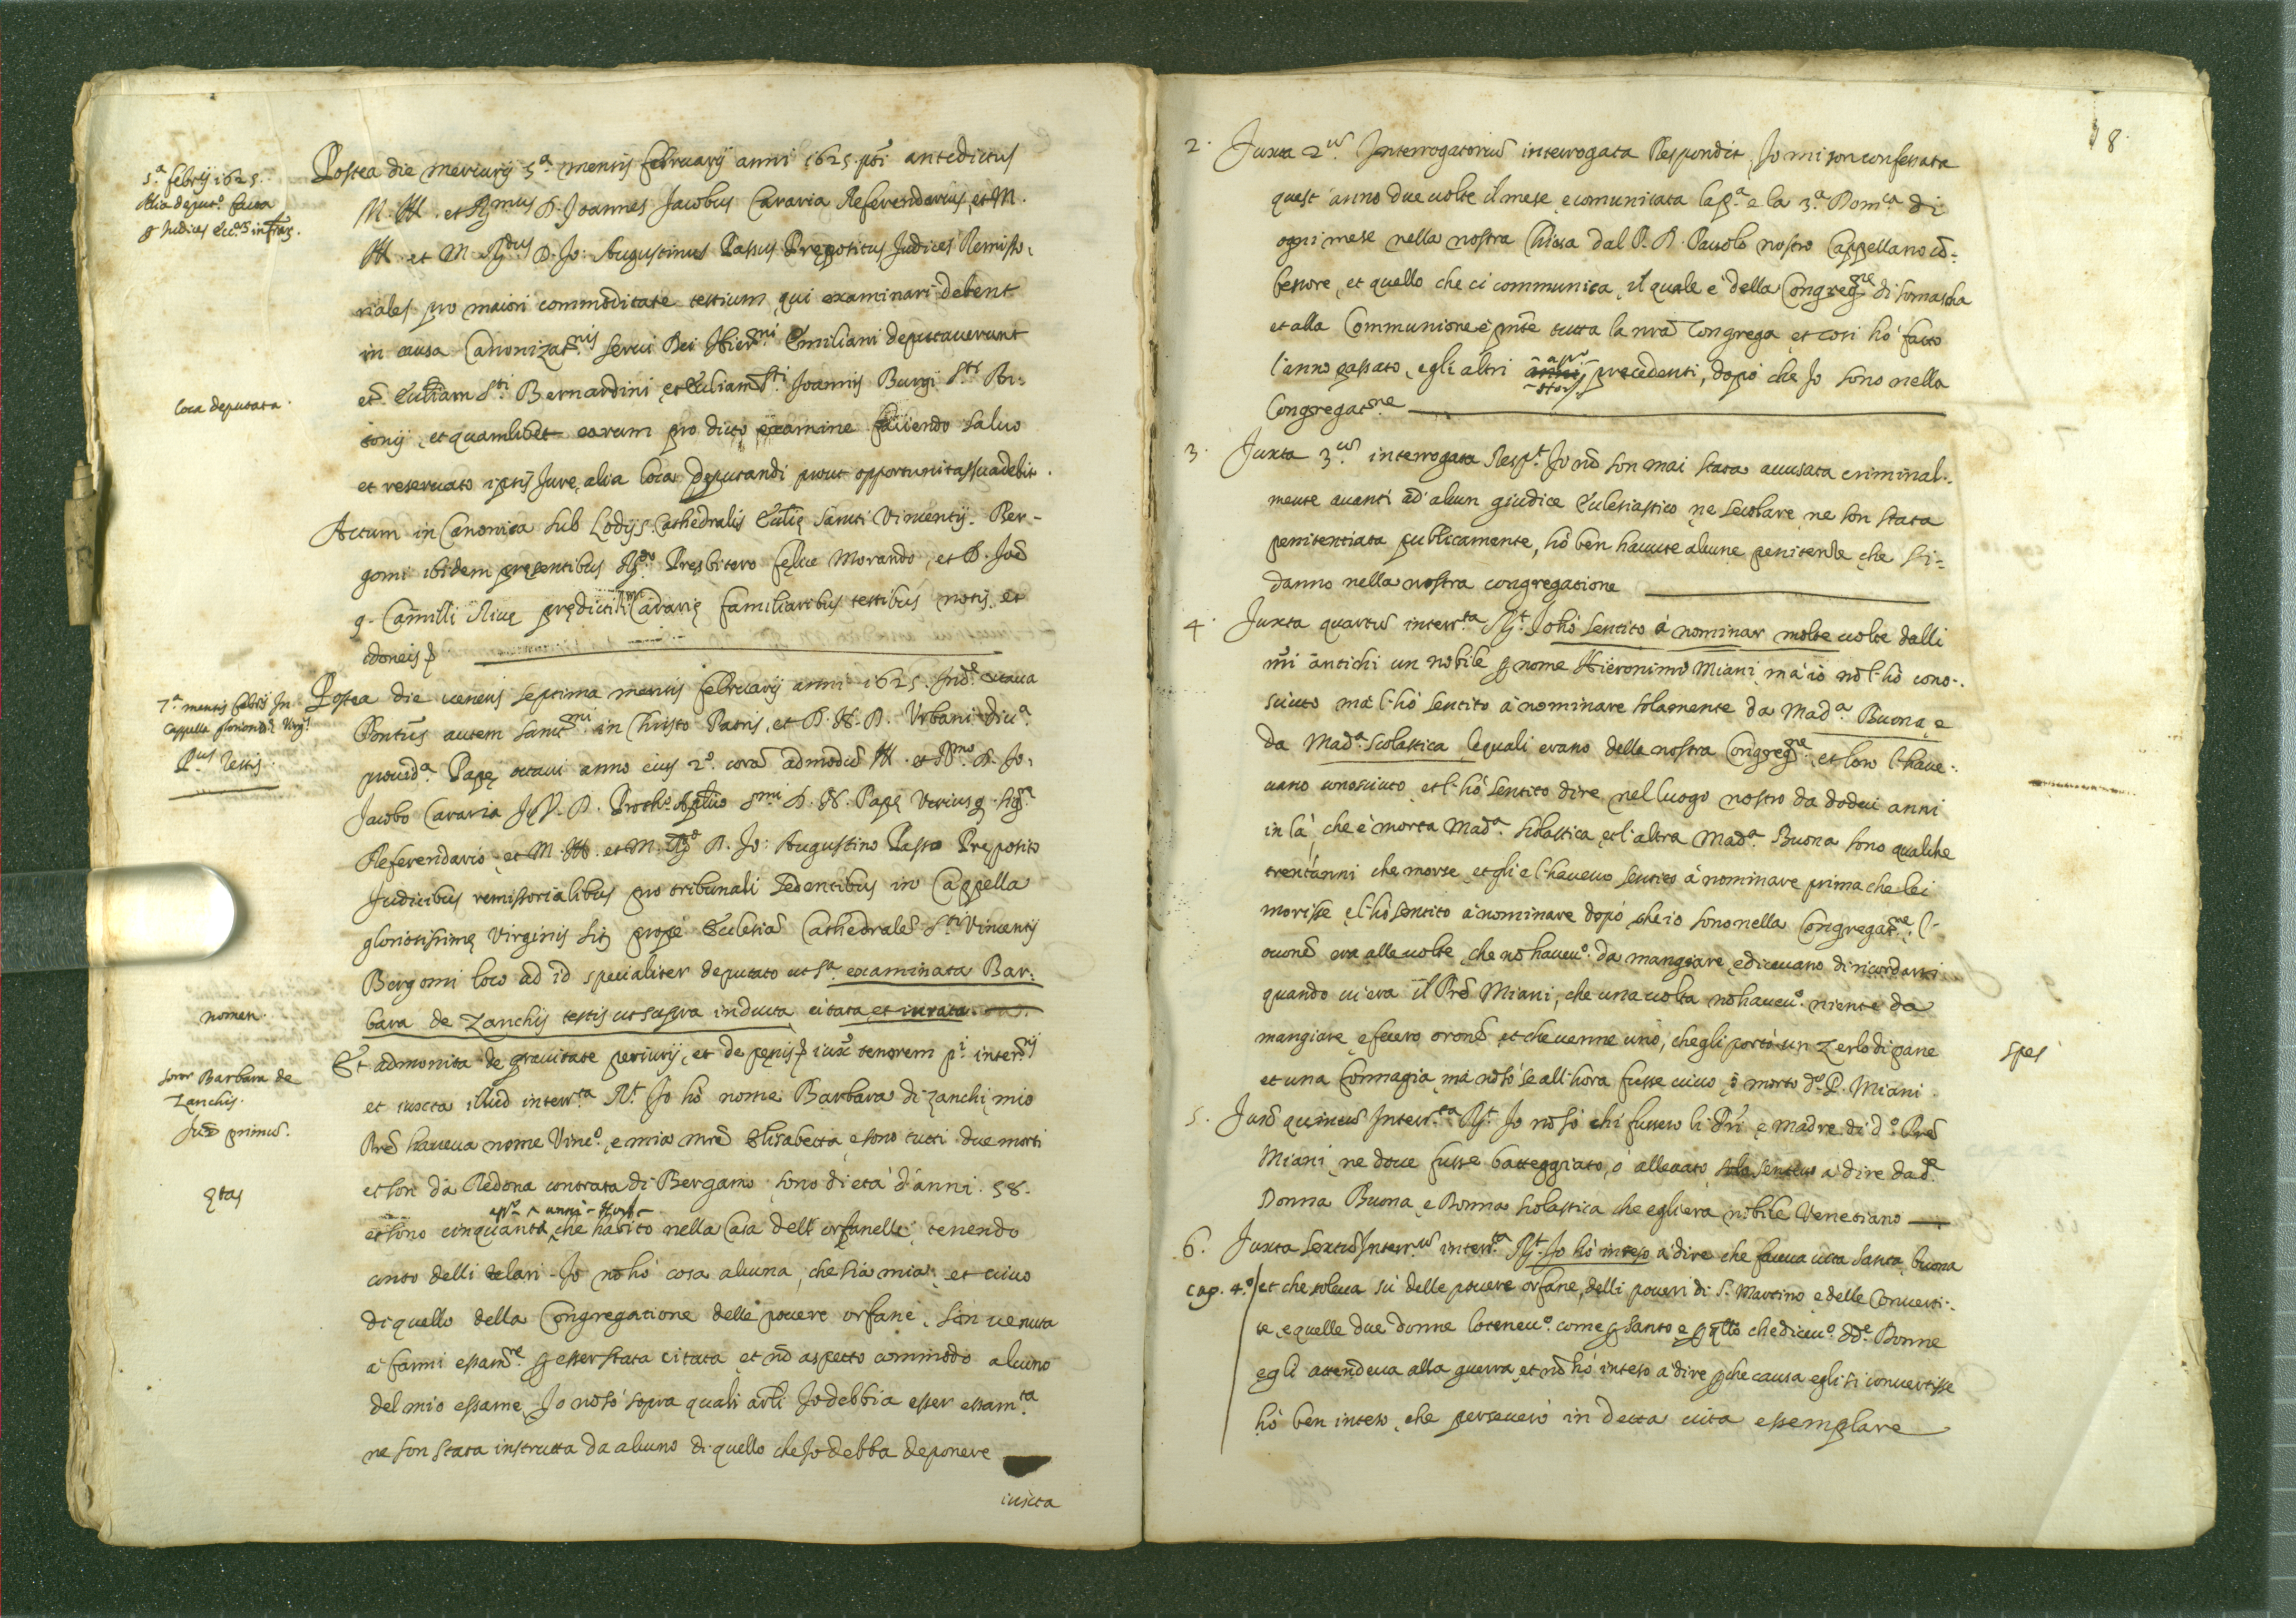 5.ª febrij 1625.
Alia deput.º facta
loca deputata.
Postea die mercurij 5.ª mensis februarij anni 1625. pñti antedictus
M. Ill. et Rmus D. Joannes Jacobus Cararia Referendarius, et M.
Ill. et M. Rdus D. Jo: Augustinus Passus Prępositus Judices Remisso-
riales pro maiori commoditate testium, qui examinari debent
in causa Canonizat.nis serui Dei Hier.mi Emiliani deputauerunt
S.ti Bernardini, et S.ti Joannis Burgi S.ti An-
tonij, et quamlibet earum pro dicto examine faciendo saluo
et reseruato ipsis Jure, alia loca deputandi prout opportunitas suadebit.
Actum in Canonica sub Lodijs Cathedralis Ecclię Sancti Vincentij Ber-
gomi ibidem pręsentibus Rdo Presbitero Felice Morando, et D. Joe
q. Camilli Riuę prędicti Cararię familiaribus testibus notis, et
idoneis
7.ª mensis febrij In
Cappella gloriosiss. Virg.
P.us Testis.
Postea die ueneris septima mensis februarij anni 1625. Ind.e octaua
Pontūs autem Sanct.mi in Christo Patris, et D. N. D. Urbani Diu.ª
prouid.ª Papę octaui anno eius 2.º corā admodū Ill. et Rmo. D. Jo:
Jacobo Cararia Proth.º Aplico S.mi D. N. Papę Utriusq. sig.ª
Referendario, et M. Ill. et M. Rdo D. Jo: Augustino Passo Preposito
Judicibus remissorialibus pro tribunali sedentibus in Cappella
gloriosissimę Virginis sitę prope Ecclesiā Cathedralē S.ti Vincentij
Bergomi loco ad id specialiter deputato ut s.ª examinata Bar-
bara de Zanchijs testis ut supra inducta, citata, et iurata
nomen.
Et admonita de grauitate periurij, et de pęnis iuxᵃ tenorem p.i inter.rij
soror Barbara de
Zanchis.
Jux primū.
et iuxta illud interr.ta R.t Jo hò nome Barbara di Zanchi, mio
Prē haueua nome Vinc.º, e mia mrē Elisabetta, e sono tutti due morti
et son da Redona contrata di Bergamo, sono di età d'anni 58.
ętas
et sono cinquanta anni che habito nella Casa dell'orfanelle, tenendo
conto delli telari. Jo nō hò cosa alcuna, che sia mia, et uiuo
di quello della Congregatione delle pouere orfane, son uenuta
à farmi essam.re p esser stata citata, et nō aspetto commodo alcuno
del mio essame, Jo nō sò sopra quali arli Jo debbia esser essam.ta
ne son stata instrutta da alcuno di quello che Jo debba deponere
iuxta
18.
2. Juxta 2.ū Interrogatoriū interrogata Respondit, Jo mi son confessata
quest'anno due uolte il mese, e comunicata la p.ª e la 3.ª Dom.ca di
ogni mese nella nostra Chiesa dal P. D. Pauolo nostro Cappellano cō-
fessore, et quello che ci communica, il quale è della Congreg.ne di Somascha
et alla Communione è pnte tutta la nrā Congrega, et cosi hò fatto
l'anno passato, e gli altri anni precedenti, dopò che Jo sono nella
Congregat.ne
3. Juxta 3.ū interrogata Resp.t Jo nō son mai stata accusata criminal-
mente auanti ad alcun giudice Ecclesiastico, ne secolare, ne son stata
penitentiata publicamente, hò ben hauute alcune penitenze che si-
danno nella nostra congregatione
4. Juxta quartū interr.ta R.t Jo hò sentito à nominar molte uolte dalli
mi antichi un nobile p nome Hieronimo Miani, mà io nō l'hò cono-
sciuto mà l'hò sentito à nominare solamente da Mad.ª Buona, e
da Mad.ª Scolastica, le quali erano della nostra Congreg.ne et loro l'haue-
uano conosciuto, et l'hò sentito dire nel luogo nostro da dodici anni
in là, che è morta Mad.ª Scolastica, et l'altra Mad.ª Buona sono qualche
trent'anni che morse, et gli e l'haueuo sentito à nominare prima che lei
morisse, e l'hò sentito à nominare dopò che io sono nella Congregat.ne, l'-
occasionē era alle uolte, che nō haueu.º da mangiare, e diceuano di ricordarsi
quando ui era il Prē Miani, che una uolta nō haueu.º niente da
mangiare, e fecero oronē, et che uenne uno, che gli portò un Zerlo di pane
et una formagia, mà nō sò se all'hora fusse uiuo, ò morto d.º P. Miani.
spes
5. Juxtā quintū Interr.ta R.t Jo nō sò chi fussero li Pri e Madre di d.º Prē
Miani, ne doue fusse batteggiato, ò alleuato, à dire da d.e
Donna Buona, e Donna Scolastica che egli era nobile Venetiano
6. Juxta sextū Interr.ū interr.ta R.t Jo hò inteso à dire che faceua uita santa, buona
Cap. 4.º
et che toleua sù delle pouere orfane, delli poueri di S. Martino, e delle Conuerti-
te, e quelle due donne lo teneu.º come p santo, e p qllo che diceu.º dd.e Donne
egli attendeua alla guerra, et nō hò inteso à dire p che causa egli si conuertisse
hò ben inteso, che perseuerò in detta uita essemplare